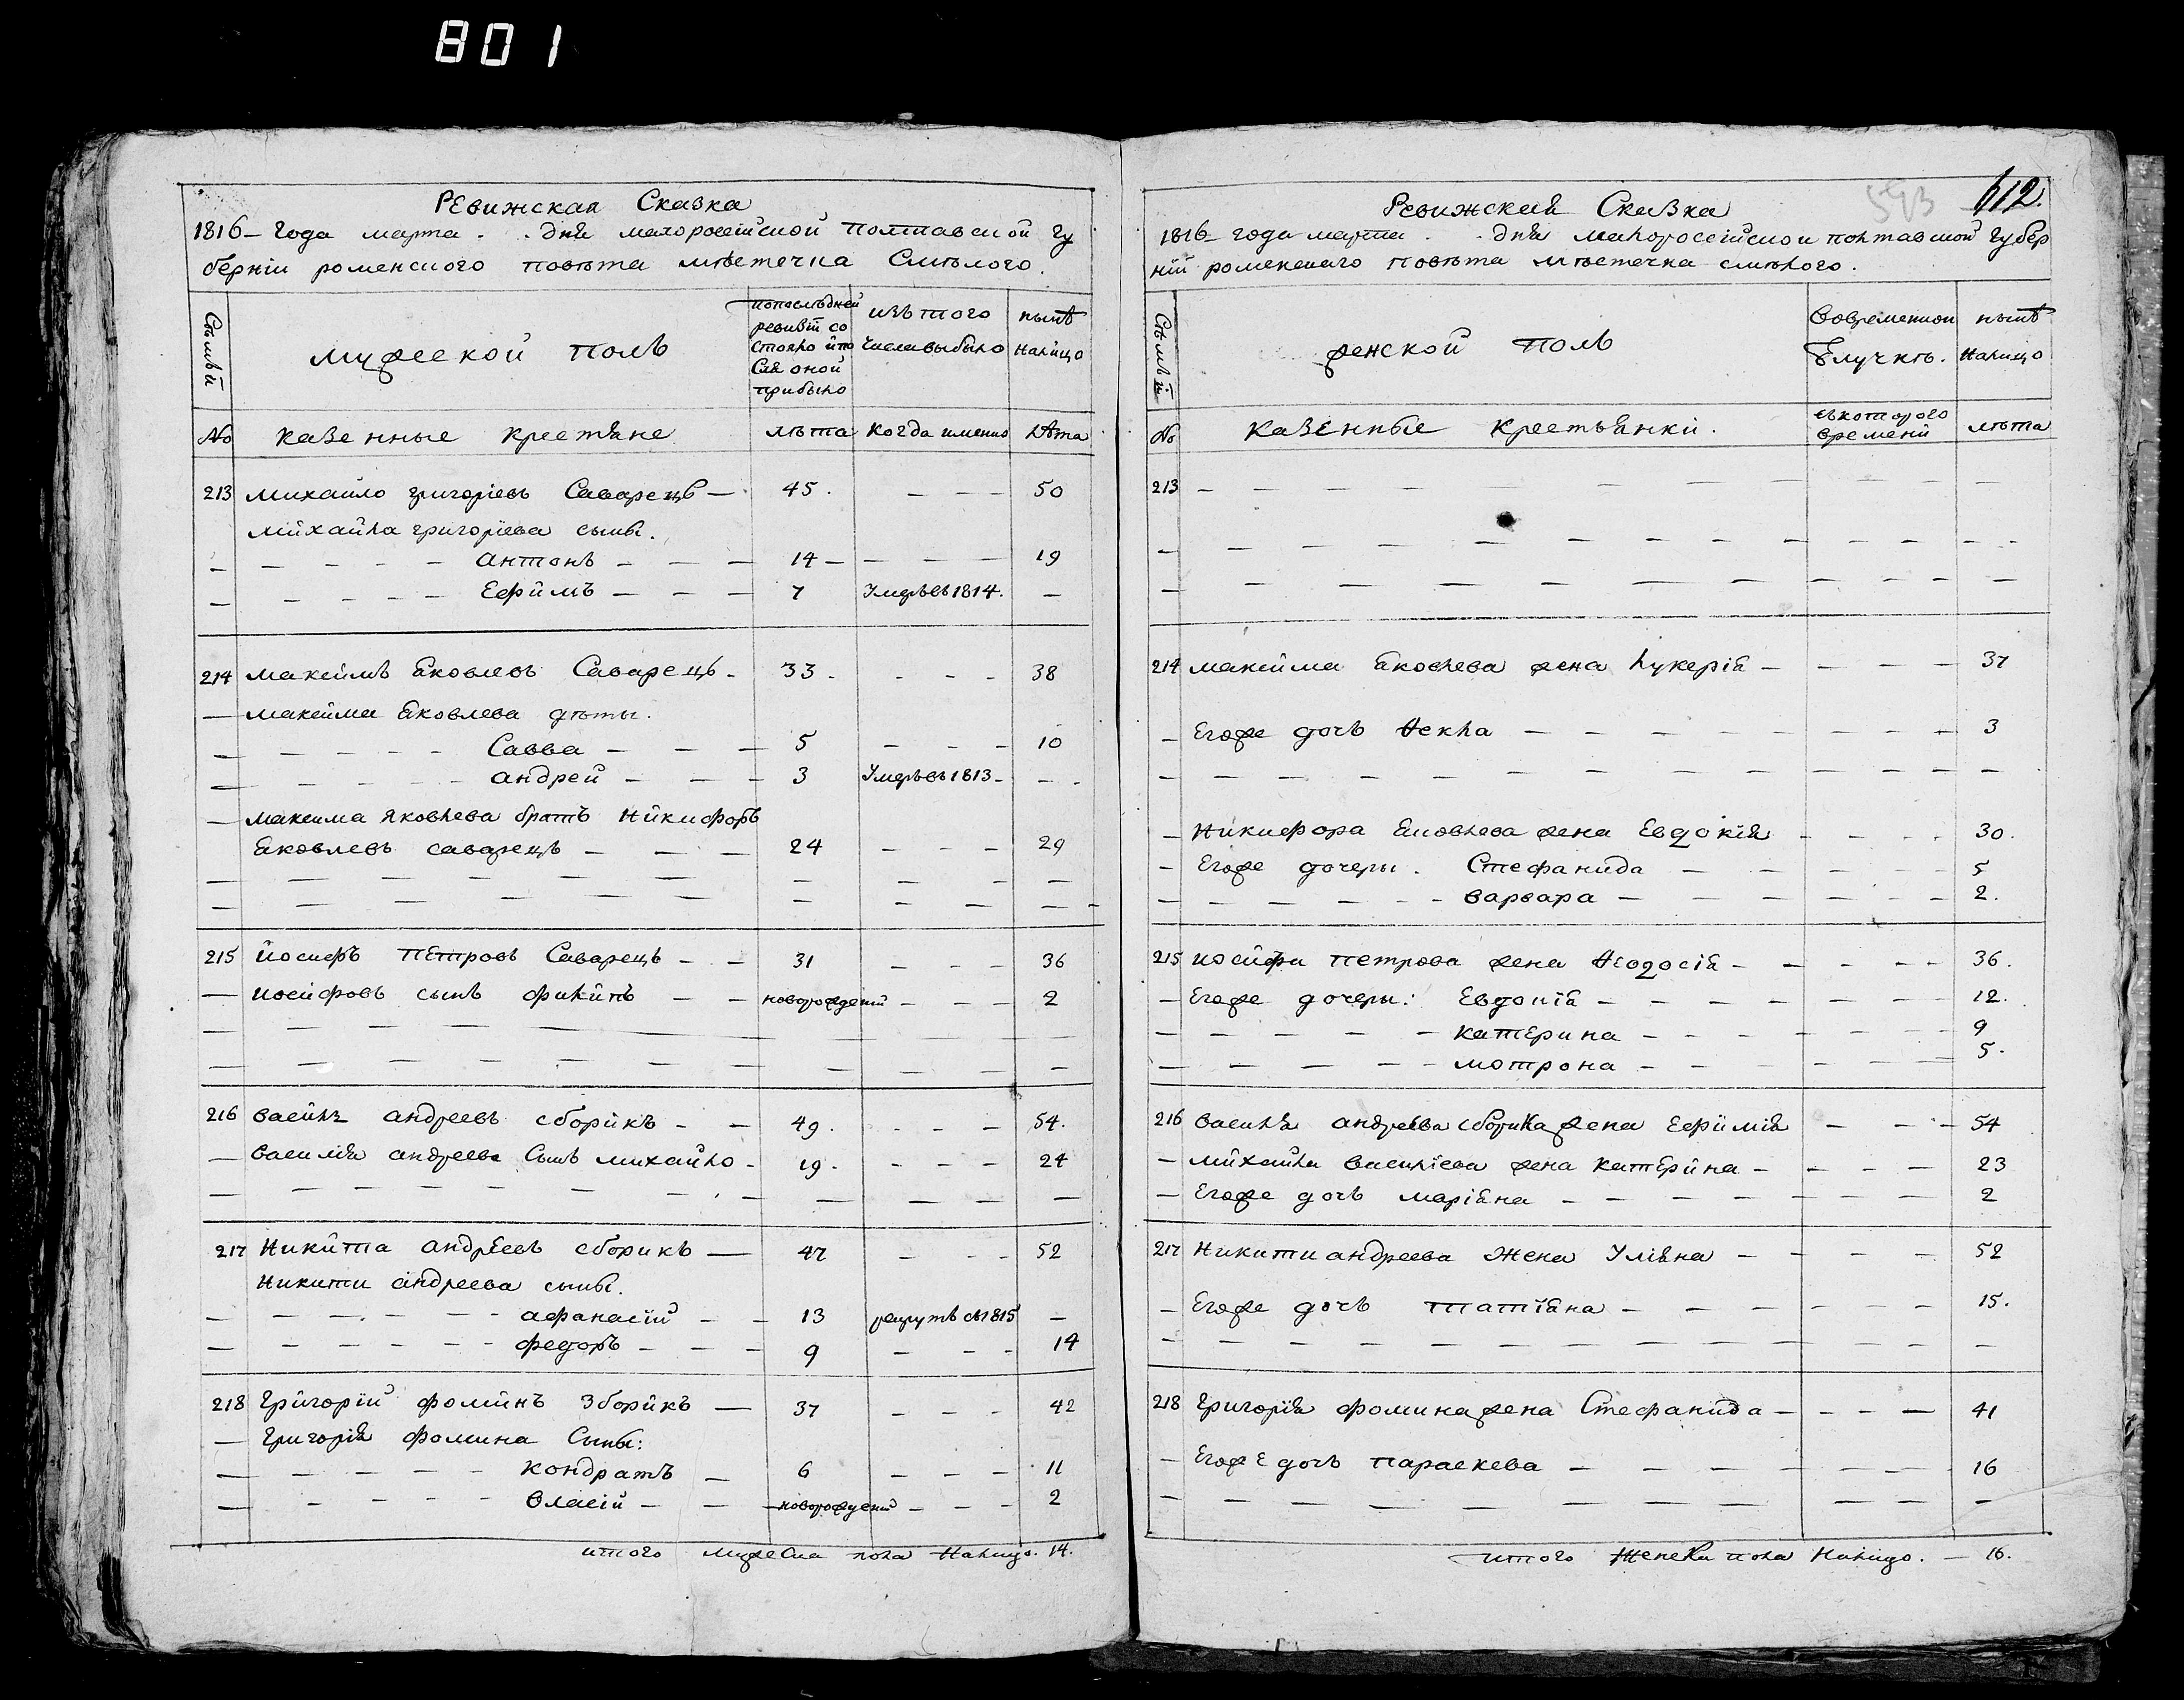 801
Ревижская Сказка
1816 – года марта - . дня малоросѣйской полтавской гу
бернїи роменского повѣта мѣстечка Смѣлого.
Сѣмьй
мужеской полъ
попослѣдней
ревизїи со
стояло ипо
сля оной
прибыло
изъ того
числа выбыло
нынѣ
налицо
№ казенные крестьяне лѣта когда именно лѣта
213 михайло григорїевъ Саварецъ — 45. – – – 50
михайла григорїева сыны.
– – – – – – антонъ – – – 14 – – – – 19
– – – – – – Ефимъ – – – 7 Умеръ въ 1814. –
214 максимъ Яковлевъ Саварецъ – 33 – - – – 38
— максима Яковлева дѣты.
– – – – – – Савва – – – 5 – – – 10
– – – – – – андрей – – – 3 Умеръ въ 1813 – – -
— максима Яковлева братъ Никифоръ
Яковлевъ саварецъ – – – 24 – – – 29
215 Иосифъ Петровъ Саварецъ – – 31 – – – 36
— иосифовъ сынъ филипъ – – новорожденый – – – 2
216 василь андреевъ сборикъ – – 49. – – – 54.
— василия андреева Сынъ михайло – 19. – – – 24
217 Никита андреевъ сборикъ — 47 – – – 52
Никити андреева сыны.
– – – – – – афанасїй – – 13 рекрутъ съ 1815 –
– – – – – – федоръ – – – 9 – – – 14
218 Григорїй фоминъ Зборикъ — 37 – – – 42
— Григорїя фомина Сыны:
— – – – – – кондратъ — 6 – – – 11
— – – – – – власїй – – новорожденый – – – 2
итого мужеска пола налицо. 14.
593 612.
Ревижская Сказка
1816 – года марта . - дня малоросѣйской полтавской губер
нїи роменскаго повѣта мѣстечка смѣлого.
Сѣмьй
женской полъ
вовременной
ѿлучкѣ.
нынѣ
налицо
№ казенные крестьянки.
съкоторого
времени
лѣта
213 – – – – – – – – – – –
214 максима Яковлева жена лукерїя – – – – 37
– Егоже дочь Фекла – – – – – – – – 3
– Никифора Яковлева жена Евдокїя – – – - 30.
– Егоже дочеры. Стефанида – – – – – 5
– – – – – – – варвара – – – – – – 2.
215 иосифа петрова жена Феодосїя – – – – – 36.
– Егоже дочеры: Евдокїя – – – – – – – 12.
– – – – – – катерина – – – – – – – 9
– – – – – – мотрона – – – – – – 5.
216 василия андреева сборика жена Ефимїя – – – 54
– михайла василїева жена катерина – – – – 23
– Егоже дочь марїяна – – – – – – – 2
217 Никити андреева Жена Улїяна – – – – 52
– Егоже дочь татїяна – – – – – – 15.
218 Григорїя фомина жена Стефанида – – – — 41
– Егоже дочь параскева – – – – – – – 16
итого женска пола налицо. — 16.